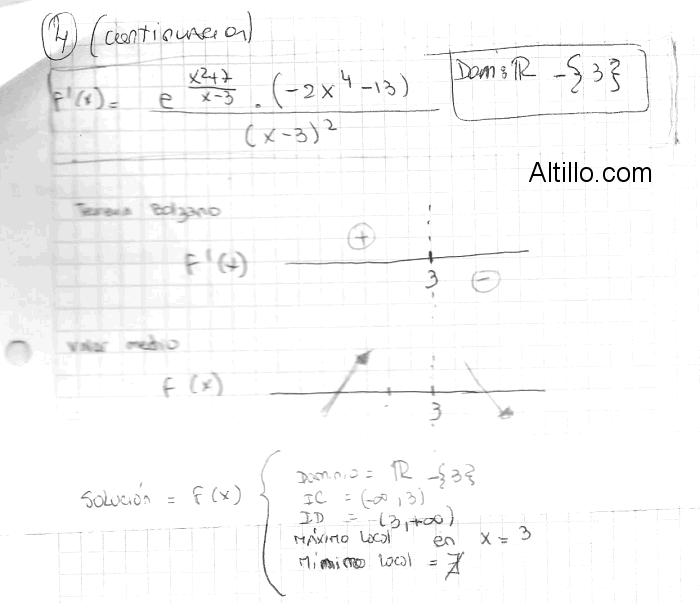 4) (continuacion)
f'(x) = e^((x²+7)/(x-3)) · (-2x⁴-13) / (x-3)²
Dom: ℝ - {3}
Altillo.com
Teorema Bolzano
+
F'(x)
3
-
Valor medio
F(x)
3
Solución = F(x) {
Dominio = ℝ - {3}
IC = (-∞, 3)
ID = (3, +∞)
Máximo local en x = 3
Mínimo local = ∄